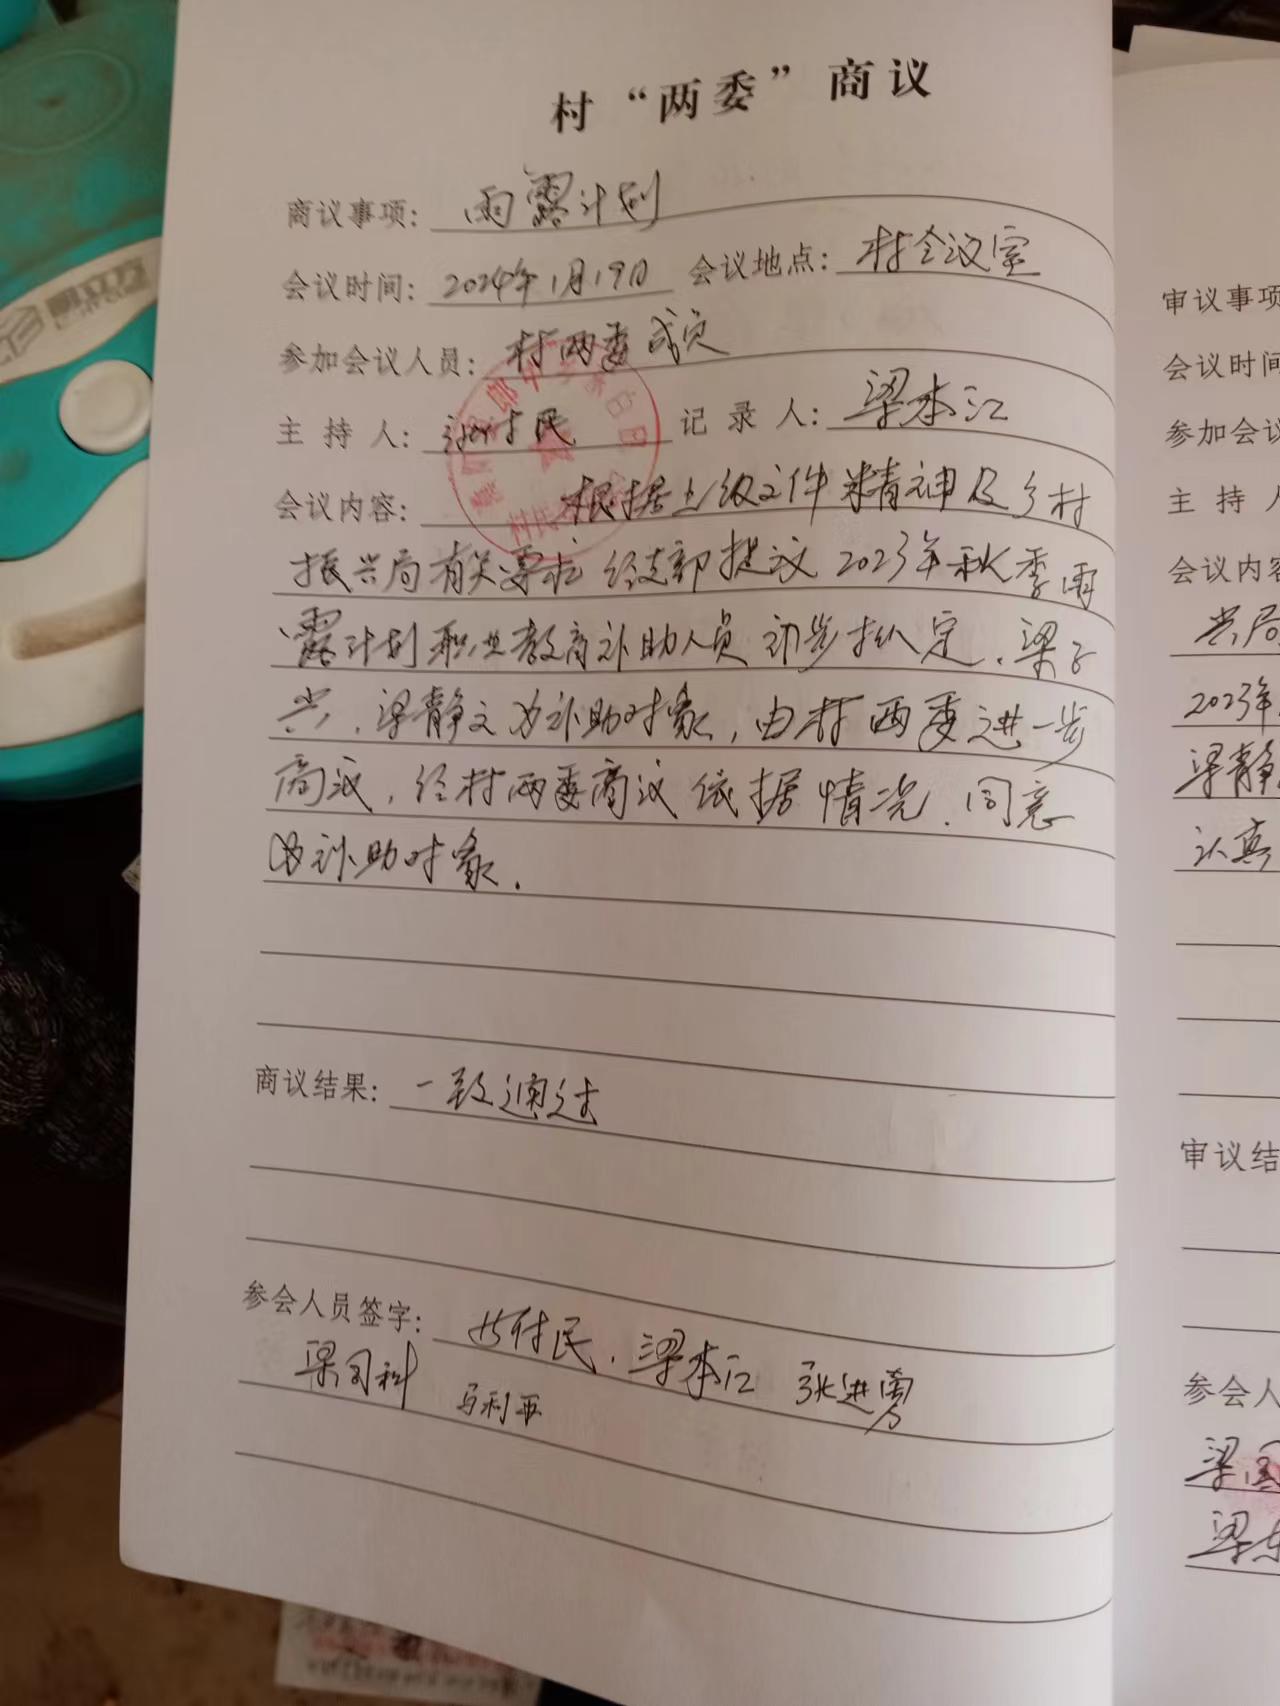 村“两委”商议
商议事项: 雨露计划
会议时间: 2024年1月19日 会议地点: 村会议室
参加会议人员: 村两委成员
主持人: 村民 记录人: 梁本江
会议内容: 根据上级文件精神及乡村
振兴局有关要求 经支部提议 2023年秋季雨
露计划职业教育补助人员初步拟定、梁子
兴、梁静文为补助对象,由村两委进一步
商议,经村两委商议依据情况、同意
为补助对象.
商议结果: 一致通过
参会人员签字: 村民、梁本江 张进勇
梁同科 马利平
审议事项
会议时间
参加会议
主持人
会议内容
兴局
2023年
梁静
认真
审议结
参会人
梁国
梁东